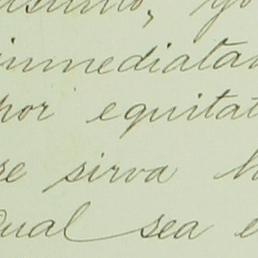 inmediatam
por equitat
se sirva h
qual sea e